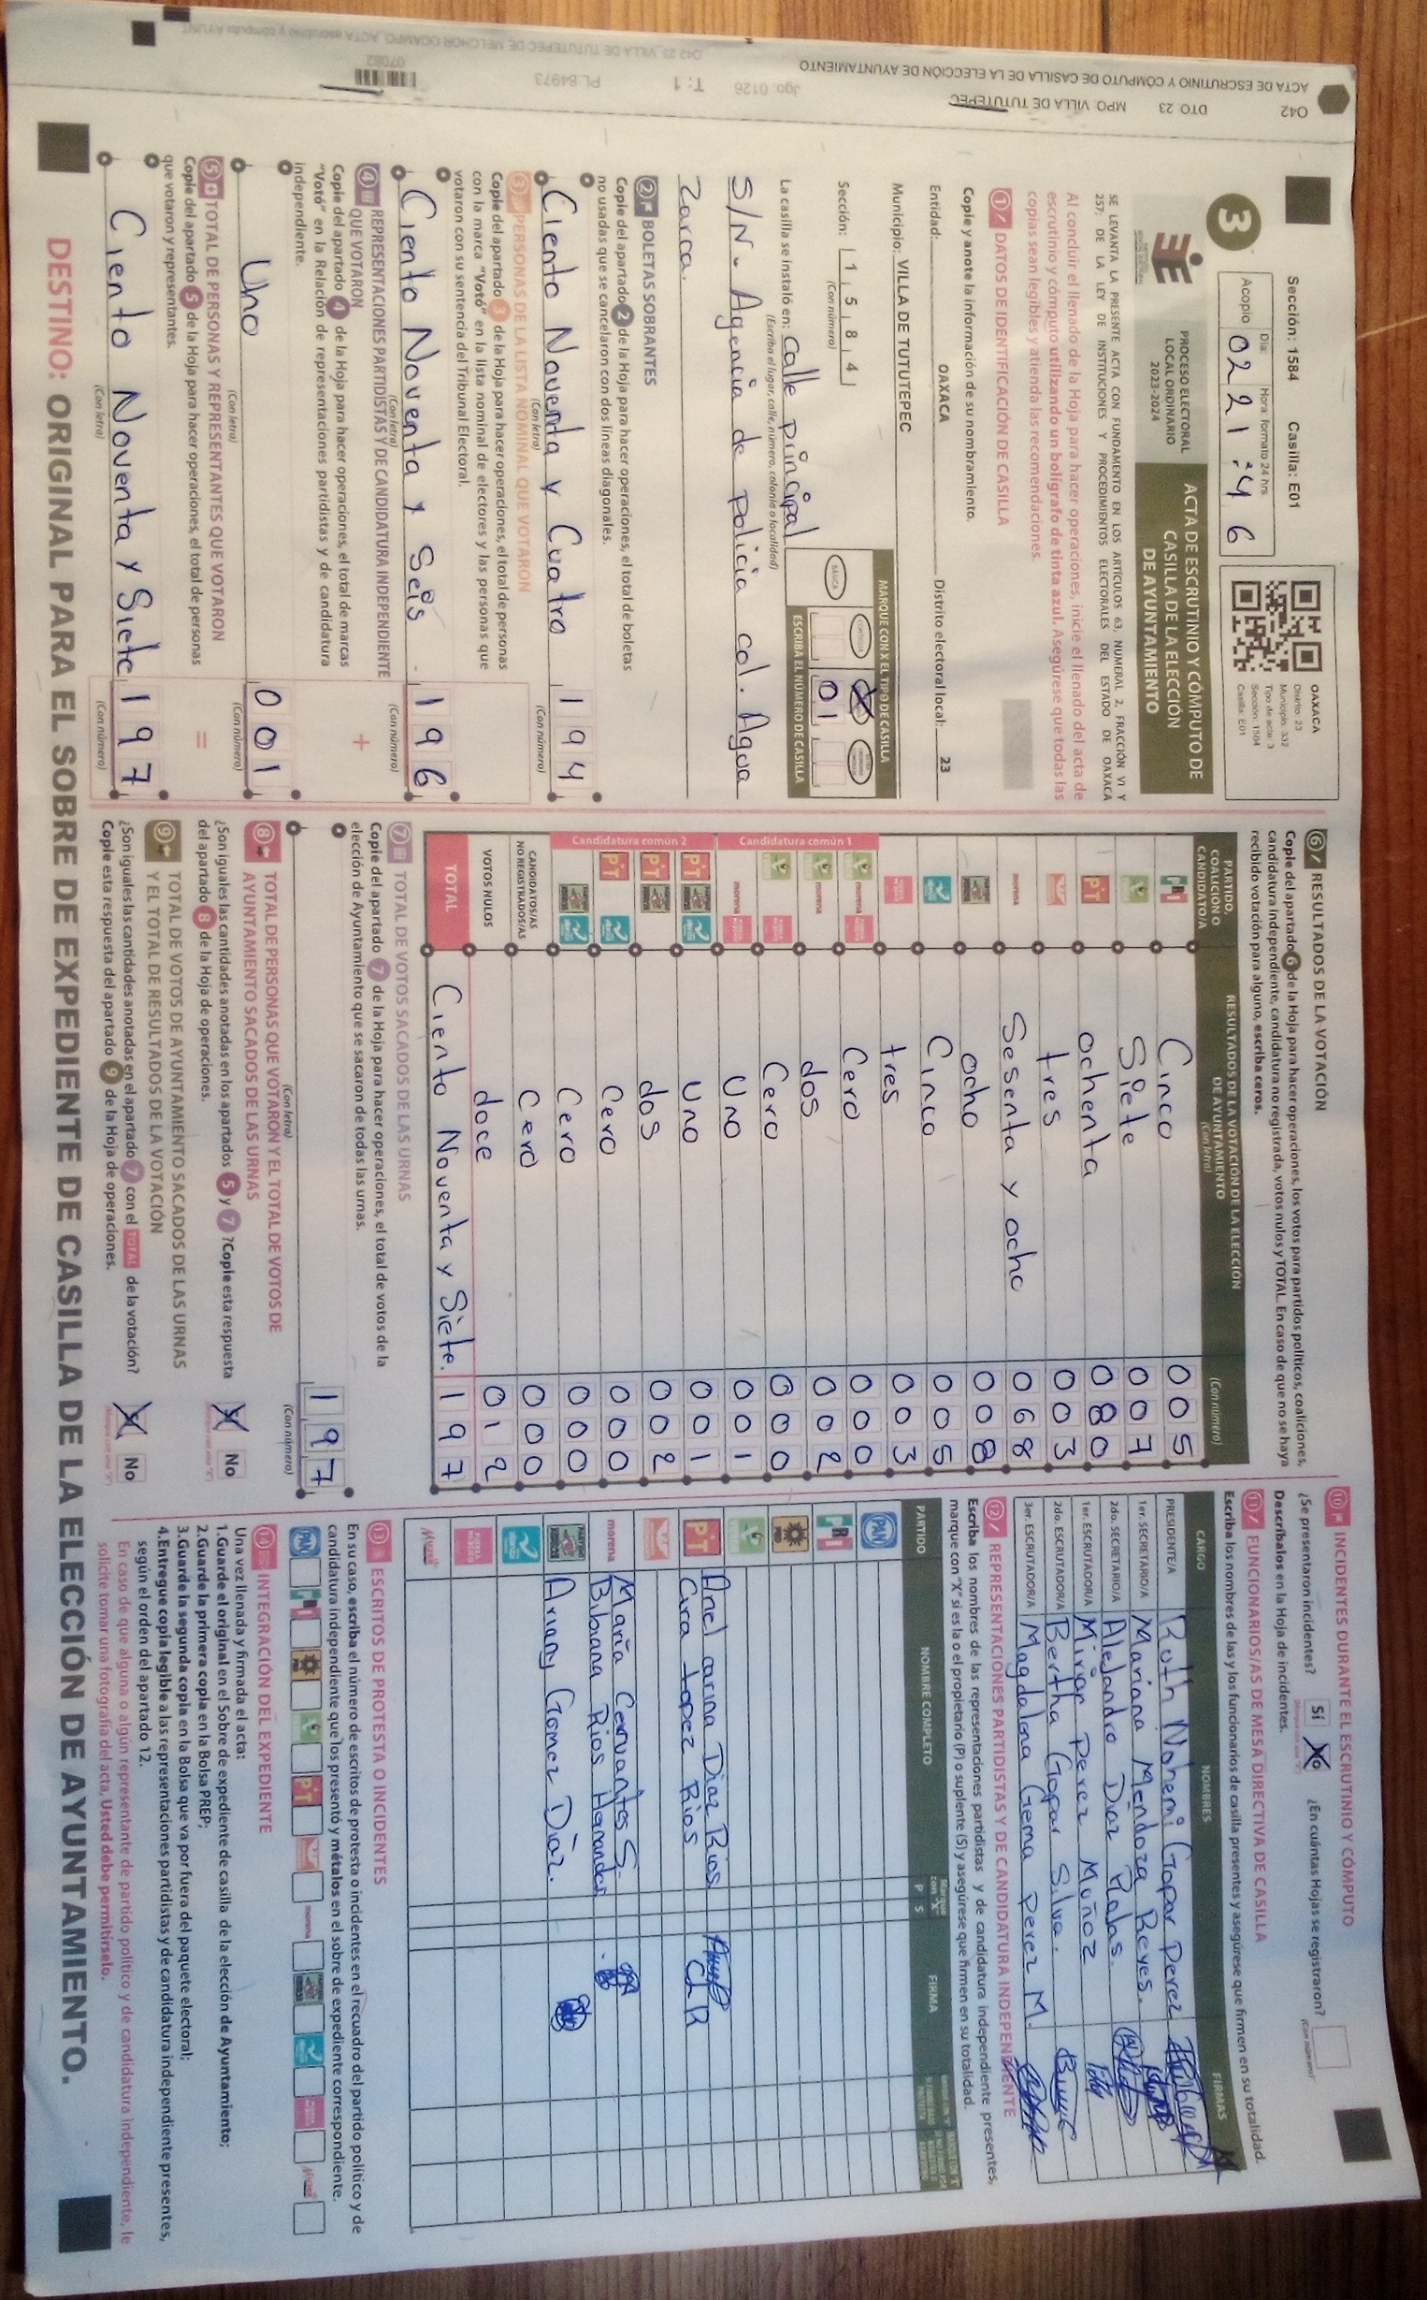 042 23 VILLA DE TUTUTEPEC DE MELCHOR OCAMPO ACTA escrutinio y cómputo AYUNT
07082
PL.84973
Jgo. 0126 T: 1
ACTA DE ESCRUTINIO Y CÓMPUTO DE CASILLA DE LA ELECCIÓN DE AYUNTAMIENTO
O42 DTO. 23 MPO. VILLA DE TUTUTEPEC
Sección: 1584 Casilla: E01
3
Acopio
Día: Hora: formato 24 hrs
02 21:46
OAXACA
Distrito: 23
Municipio: 332
Tipo de acta: 3
Sección: 1584
Casilla: E01
PROCESO ELECTORAL
LOCAL ORDINARIO
2023-2024
ACTA DE ESCRUTINIO Y CÓMPUTO DE
CASILLA DE LA ELECCIÓN
DE AYUNTAMIENTO
SE LEVANTA LA PRESENTE ACTA CON FUNDAMENTO EN LOS ARTÍCULOS 63, NUMERAL 2, FRACCIÓN VI Y
257; DE LA LEY DE INSTITUCIONES Y PROCEDIMIENTOS ELECTORALES DEL ESTADO DE OAXACA
Al concluir el llenado de la Hoja para hacer operaciones, inicie el llenado del acta de
escrutinio y cómputo utilizando un bolígrafo de tinta azul. Asegúrese que todas las
copias sean legibles y atienda las recomendaciones.
1 DATOS DE IDENTIFICACIÓN DE CASILLA
Copie y anote la información de su nombramiento.
Entidad: OAXACA Distrito electoral local: 23
Municipio: VILLA DE TUTUTEPEC
Sección: 1 5 8 4
(Con número)
MARQUE CON X EL TIPO DE CASILLA
BÁSICA
ESCRIBA EL NÚMERO DE CASILLA
01
La casilla se instaló en: Calle principal
(Escriba el lugar, calle, número, colonia o localidad)
S/N. Agencia de policia col. Agua
Zarca.
2 BOLETAS SOBRANTES
Copie del apartado 2 de la Hoja para hacer operaciones, el total de boletas
no usadas que se cancelaron con dos líneas diagonales.
Ciento Noventa y Cuatro 194
(Con letra) (Con número)
3 PERSONAS DE LA LISTA NOMINAL QUE VOTARON
Copie del apartado 3 de la Hoja para hacer operaciones, el total de personas
con la marca "Votó" en la lista nominal de electores y las personas que
votaron con su sentencia del Tribunal Electoral.
Ciento Noventa y Seis 196
(Con letra) (Con número)
4 REPRESENTACIONES PARTIDISTAS Y DE CANDIDATURA INDEPENDIENTE
QUE VOTARON
Copie del apartado 4 de la Hoja para hacer operaciones, el total de marcas
"Votó" en la Relación de representaciones partidistas y de candidatura
independiente.
+
Uno 001
(Con letra) (Con número)
5 TOTAL DE PERSONAS Y REPRESENTANTES QUE VOTARON
Copie del apartado 5 de la Hoja para hacer operaciones, el total de personas
que votaron y representantes.
=
Ciento Noventa y Siete 197
(Con letra) (Con número)
6 RESULTADOS DE LA VOTACIÓN
Copie del apartado 6 de la Hoja para hacer operaciones, los votos para partidos políticos, coaliciones,
candidatura independiente, candidatura no registrada, votos nulos y TOTAL. En caso de que no se haya
recibido votación para alguno, escriba ceros.
PARTIDO, COALICIÓN O CANDIDATO/A
RESULTADOS DE LA VOTACIÓN DE LA ELECCIÓN DE AYUNTAMIENTO
(Con letra) (Con número)
PRI Cinco 005
Siete 007
PT ochenta 080
tres 003
morena Sesenta y ocho 068
ocho 008
Cinco 005
tres 003
Candidatura común 1
morena Cero 000
morena dos 002
Cero 000
morena Uno 001
Candidatura común 2
PT Uno 001
PT dos 002
PT Cero 000
Cero 000
CANDIDATOS/AS NO REGISTRADOS/AS Cero 000
VOTOS NULOS doce 012
TOTAL Ciento Noventa y Siete. 197
7 TOTAL DE VOTOS SACADOS DE LAS URNAS
Copie del apartado 7 de la Hoja para hacer operaciones, el total de votos de la
elección de Ayuntamiento que se sacaron de todas las urnas.
197
(Con letra) (Con número)
8 TOTAL DE PERSONAS QUE VOTARON Y EL TOTAL DE VOTOS DE
AYUNTAMIENTO SACADOS DE LAS URNAS
¿Son iguales las cantidades anotadas en los apartados 5 y 7? Copie esta respuesta
del apartado 8 de la Hoja de operaciones.
No
9 TOTAL DE VOTOS DE AYUNTAMIENTO SACADOS DE LAS URNAS
Y EL TOTAL DE RESULTADOS DE LA VOTACIÓN
¿Son iguales las cantidades anotadas en el apartado 7 con el TOTAL de la votación?
Copie esta respuesta del apartado 9 de la Hoja de operaciones.
No
10 INCIDENTES DURANTE EL ESCRUTINIO Y CÓMPUTO
¿Se presentaron incidentes? Sí No ¿En cuántas Hojas se registraron?
(Con número)
Descríbalos en la Hoja de incidentes.
11 FUNCIONARIOS/AS DE MESA DIRECTIVA DE CASILLA
Escriba los nombres de las y los funcionarios de casilla presentes y asegúrese que firmen en su totalidad.
CARGO NOMBRES FIRMAS
PRESIDENTE/A Ruth Nohemi Gopar Perez
1er. SECRETARIO/A Mariana Mendoza Reyes.
2do. SECRETARIO/A Alejandro Diaz
1er. ESCRUTADOR/A Mirian Perez Muñoz
2do. ESCRUTADOR/A Bertha Gopar Silva.
3er. ESCRUTADOR/A Magdalena Gema Perez M.
12 REPRESENTACIONES PARTIDISTAS Y DE CANDIDATURA INDEPENDIENTE
Escriba los nombres de las representaciones partidistas y de candidatura independiente presentes,
marque con "X" si es la o el propietario (P) o suplente (S) y asegúrese que firmen en su totalidad.
PARTIDO NOMBRE COMPLETO Marque con "X" P S FIRMA
PAN
PRI
PRD
PT Ariel carina Diaz Rios
Cira Lopez Rios
morena Maria Cervantes S.
Bibiana Rios Hernandez
Arianny Gomez Diaz.
13 ESCRITOS DE PROTESTA O INCIDENTES
En su caso, escriba el número de escritos de protesta o incidentes en el recuadro del partido político y de
candidatura independiente que los presentó y métalos en el sobre de expediente correspondiente.
PAN PRI PRD PT morena
14 INTEGRACIÓN DEL EXPEDIENTE
Una vez llenada y firmada el acta:
1.Guarde el original en el Sobre de expediente de casilla de la elección de Ayuntamiento;
2.Guarde la primera copia en la Bolsa PREP;
3.Guarde la segunda copia en la Bolsa que va por fuera del paquete electoral;
4.Entregue copia legible a las representaciones partidistas y de candidatura independiente presentes,
según el orden del apartado 12.
En caso de que alguna o algún representante de partido político y de candidatura independiente, le
solicite tomar una fotografía del acta, Usted debe permitírselo.
DESTINO: ORIGINAL PARA EL SOBRE DE EXPEDIENTE DE CASILLA DE LA ELECCIÓN DE AYUNTAMIENTO.